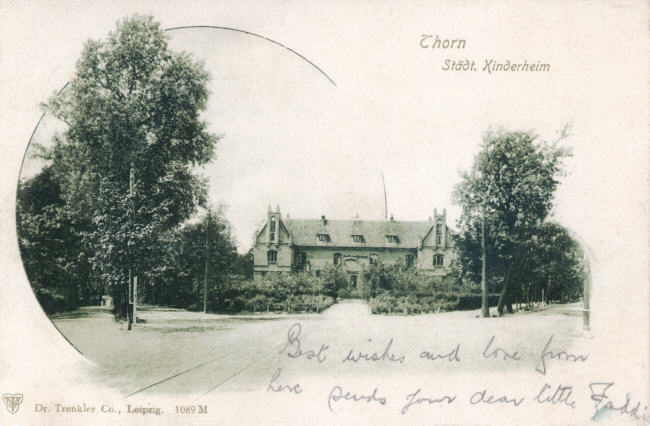 Thorn
Städt. Kinderheim
Best wishes and love from
here sends your dear little
Dr. Trenkler Co., Leipzig. 1089 M